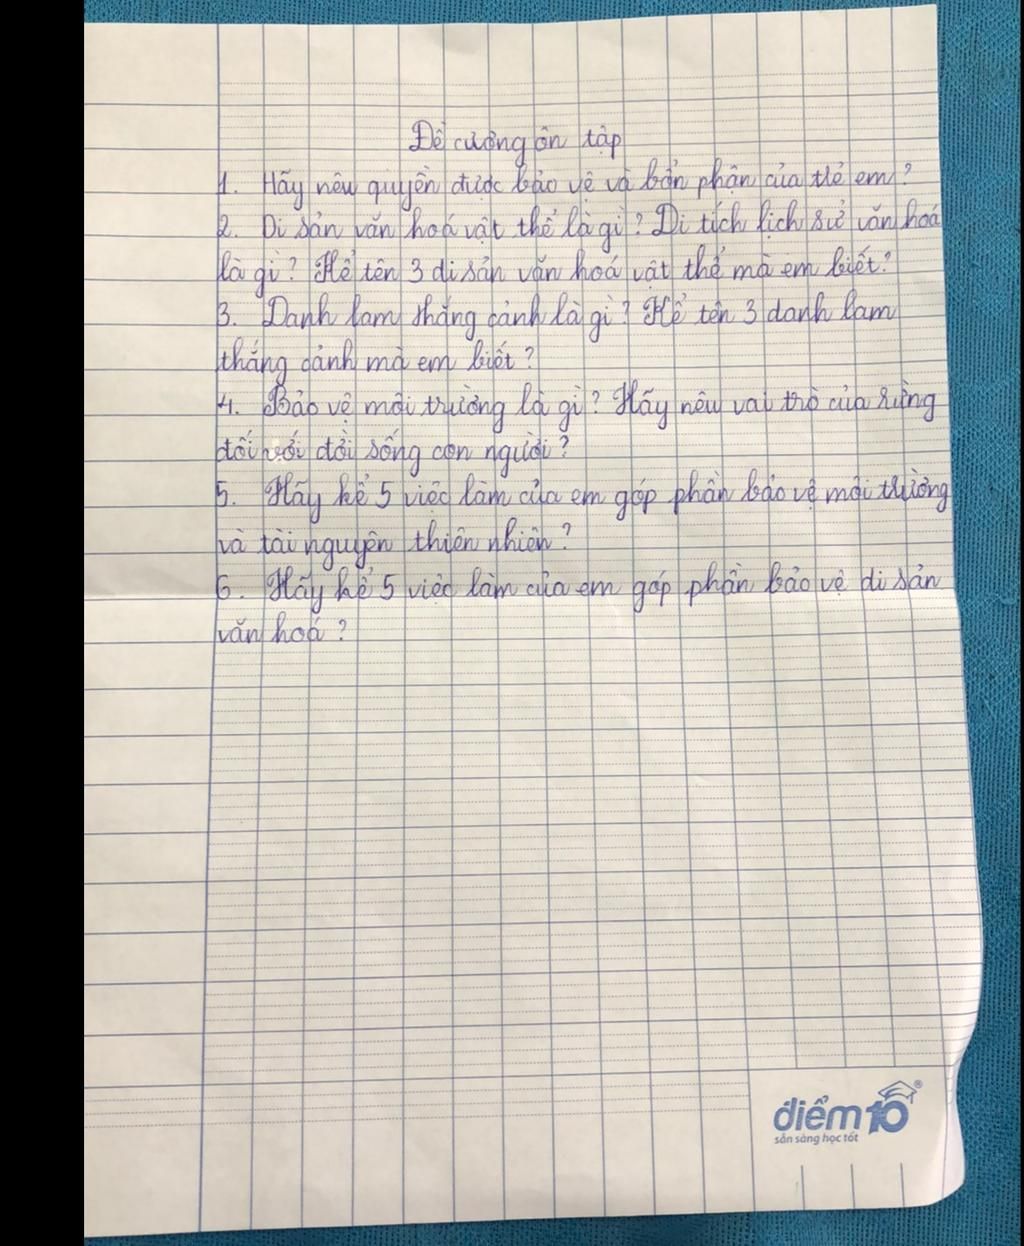 Đề cương ôn tập
1. Hãy nêu quyền được bảo vệ và bổn phận của trẻ em?
2. Di sản văn hoá vật thể là gì? Di tích lịch sử văn hoá
là gì? Kể tên 3 di sản văn hoá vật thể mà em biết?
3. Danh lam thắng cảnh là gì? Kể tên 3 danh lam
thắng cảnh mà em biết?
4. Bảo vệ môi trường là gì? Hãy nêu vai trò của rừng
đối với đời sống con người?
5. Hãy kể 5 việc làm của em góp phần bảo vệ môi trường
và tài nguyên thiên nhiên?
6. Hãy kể 5 việc làm của em góp phần bảo vệ di sản
văn hoá?
điểm10®
sẵn sàng học tốt